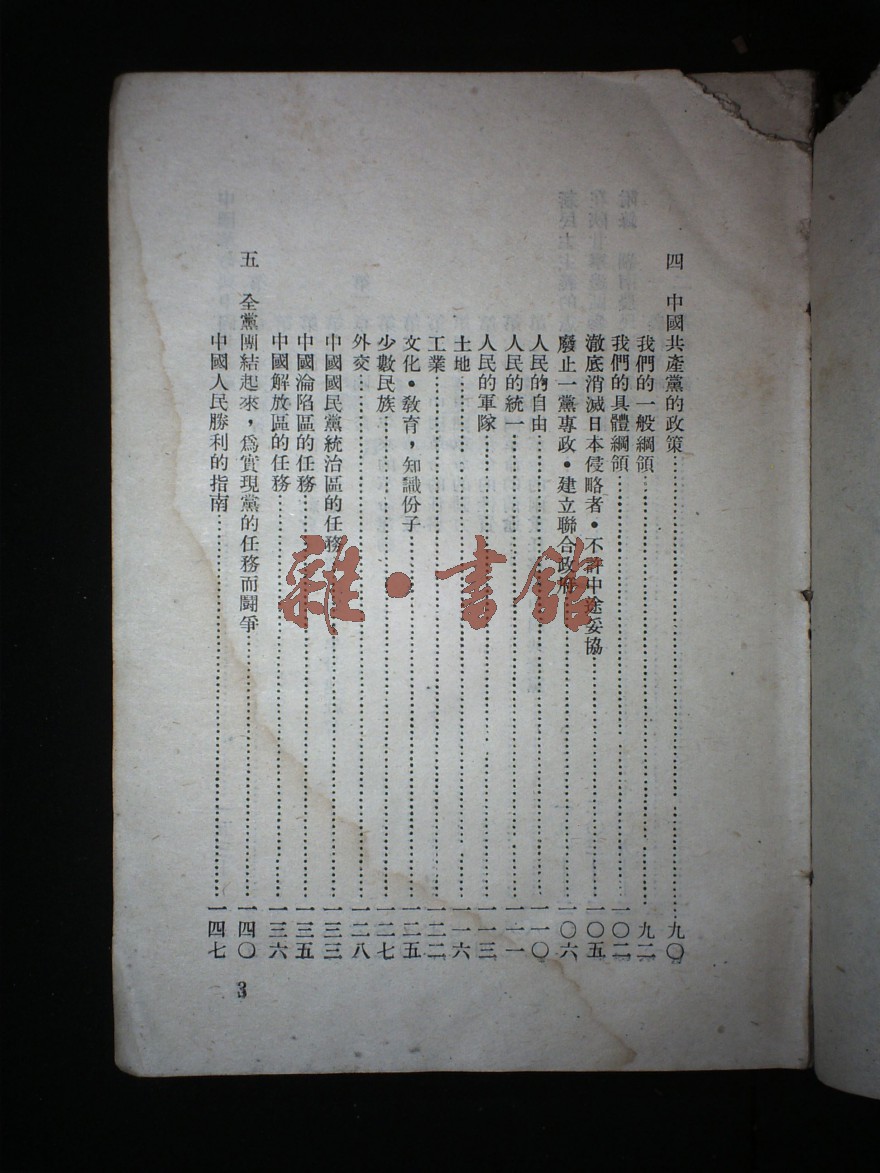 四　中國共產黨的政策……九〇
我們的一般綱領……九二
我們的具體綱領……一〇二
澈底消滅日本侵略者・不許中途妥協……一〇五
廢止一黨專政・建立聯合政府……一〇六
人民的自由……一一〇
人民的統一……一一一
人民的軍隊……一一三
土地……一一六
工業……一二二
文化・敎育，知識份子……一二五
少數民族……一二七
外交……一二八
中國國民黨統治區的任務……一三三
中國淪陷區的任務……一三五
中國解放區的任務……一三六
五　全黨團結起來，爲實現黨的任務而鬪爭……一四〇
中國人民勝利的指南……一四七
3
雜・書館